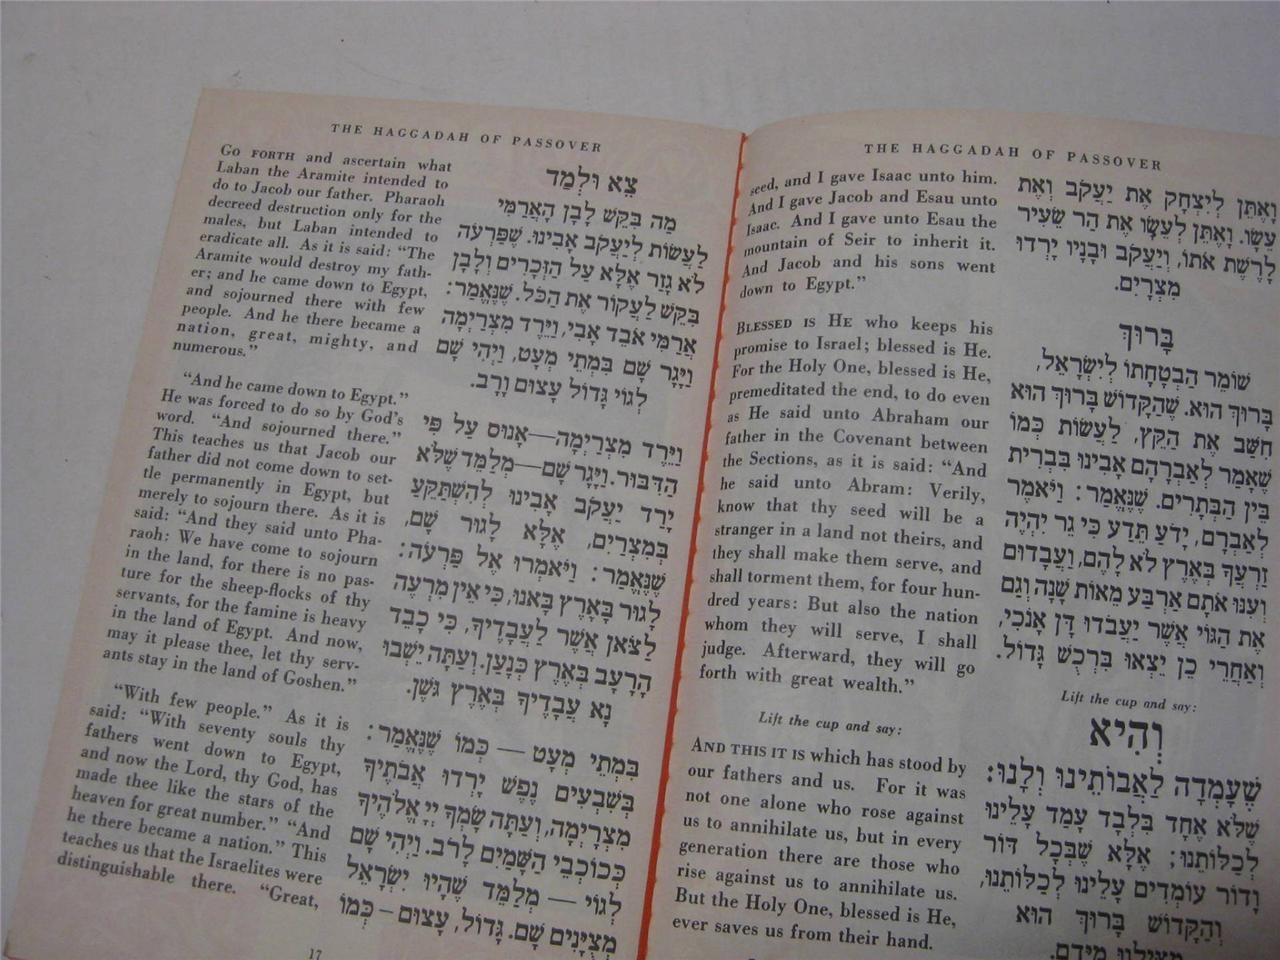 THE HAGGADAH OF PASSOVER
seed, and I gave Isaac unto him.
And I gave Jacob and Esau unto
Isaac. And I gave unto Esau the
mountain of Seir to inherit it.
And Jacob and his sons went
down to Egypt."
BLESSED IS HE who keeps his
promise to Israel; blessed is He.
For the Holy One, blessed is He,
premeditated the end, to do even
as He said unto Abraham our
father in the Covenant between
the Sections, as it is said: "And
he said unto Abram: Verily,
know that thy seed will be a
stranger in a land not theirs, and
they shall make them serve, and
shall torment them, for four hun-
dred years: But also the nation
whom they will serve, I shall
judge. Afterward, they will go
forth with great wealth."
Lift the cup and say:
AND THIS IT IS which has stood by
our fathers and us. For it was
not one alone who rose against
us to annihilate us, but in every
generation there are those who
rise against us to annihilate us.
But the Holy One, blessed is He,
ever saves us from their hand.
וָאֶתֵּן לְיִצְחָק אֶת יַעֲקֹב וְאֶת
עֵשָׂו. וָאֶתֵּן לְעֵשָׂו אֶת הַר שֵׂעִיר
לָרֶשֶׁת אֹתוֹ, וְיַעֲקֹב וּבָנָיו יָרְדוּ
מִצְרָיִם.
בָּרוּךְ
שׁוֹמֵר הַבְטָחָתוֹ לְיִשְׂרָאֵל,
בָּרוּךְ הוּא. שֶׁהַקָּדוֹשׁ בָּרוּךְ הוּא
חִשַּׁב אֶת הַקֵּץ, לַעֲשׂוֹת כְּמוֹ
שֶׁאָמַר לְאַבְרָהָם אָבִינוּ בִּבְרִית
בֵּין הַבְּתָרִים. שֶׁנֶּאֱמַר: וַיֹּאמֶר
לְאַבְרָם, יָדֹעַ תֵּדַע כִּי גֵר יִהְיֶה
זַרְעֲךָ בְּאֶרֶץ לֹא לָהֶם, וַעֲבָדוּם
וְעִנּוּ אֹתָם אַרְבַּע מֵאוֹת שָׁנָה. וְגַם
אֶת הַגּוֹי אֲשֶׁר יַעֲבֹדוּ דָּן אָנֹכִי,
וְאַחֲרֵי כֵן יֵצְאוּ בִּרְכֻשׁ גָּדוֹל.
Lift the cup and say:
וְהִיא
שֶׁעָמְדָה לַאֲבוֹתֵינוּ וְלָנוּ:
שֶׁלֹּא אֶחָד בִּלְבָד עָמַד עָלֵינוּ
לְכַלּוֹתֵנוּ; אֶלָּא שֶׁבְּכָל דּוֹר
וָדוֹר עוֹמְדִים עָלֵינוּ לְכַלּוֹתֵנוּ,
וְהַקָּדוֹשׁ בָּרוּךְ הוּא
מַצִּילֵנוּ מִיָּדָם.
THE HAGGADAH OF PASSOVER
GO FORTH and ascertain what
Laban the Aramite intended to
do to Jacob our father. Pharaoh
decreed destruction only for the
males, but Laban intended to
eradicate all. As it is said: "The
Aramite would destroy my fath-
er; and he came down to Egypt,
and sojourned there with few
people. And he there became a
nation, great, mighty, and
numerous."
"And he came down to Egypt."
He was forced to do so by God's
word. "And sojourned there."
This teaches us that Jacob our
father did not come down to set-
tle permanently in Egypt, but
merely to sojourn there. As it is
said: "And they said unto Pha-
raoh: We have come to sojourn
in the land, for there is no pas-
ture for the sheep-flocks of thy
servants, for the famine is heavy
in the land of Egypt. And now,
may it please thee, let thy serv-
ants stay in the land of Goshen."
"With few people." As it is
said: "With seventy souls thy
fathers went down to Egypt,
and now the Lord, thy God, has
made thee like the stars of the
heaven for great number." "And
he there became a nation." This
teaches us that the Israelites were
distinguishable there. "Great,
צֵא וּלְמַד
מַה בִּקֵּשׁ לָבָן הָאֲרַמִּי
לַעֲשׂוֹת לְיַעֲקֹב אָבִינוּ. שֶׁפַּרְעֹה
לֹא גָזַר אֶלָּא עַל הַזְּכָרִים וְלָבָן
בִּקֵּשׁ לַעֲקוֹר אֶת הַכֹּל. שֶׁנֶּאֱמַר:
אֲרַמִּי אֹבֵד אָבִי, וַיֵּרֶד מִצְרַיְמָה
וַיָּגָר שָׁם בִּמְתֵי מְעָט, וַיְהִי שָׁם
לְגוֹי גָּדוֹל עָצוּם וָרָב.
וַיֵּרֶד מִצְרַיְמָה—אָנוּס עַל פִּי
הַדִּבּוּר. וַיָּגָר שָׁם—מְלַמֵּד שֶׁלֹּא
יָרַד יַעֲקֹב אָבִינוּ לְהִשְׁתַּקֵּעַ
בְּמִצְרַיִם, אֶלָּא לָגוּר שָׁם,
שֶׁנֶּאֱמַר: וַיֹּאמְרוּ אֶל פַּרְעֹה:
לָגוּר בָּאָרֶץ בָּאנוּ, כִּי אֵין מִרְעֶה
לַצֹּאן אֲשֶׁר לַעֲבָדֶיךָ, כִּי כָבֵד
הָרָעָב בְּאֶרֶץ כְּנָעַן. וְעַתָּה יֵשְׁבוּ
נָא עֲבָדֶיךָ בְּאֶרֶץ גֹּשֶׁן.
בִּמְתֵי מְעָט — כְּמוֹ שֶׁנֶּאֱמַר:
בְּשִׁבְעִים נֶפֶשׁ יָרְדוּ אֲבֹתֶיךָ
מִצְרָיְמָה, וְעַתָּה שָׂמְךָ יְיָ אֱלֹהֶיךָ
כְּכוֹכְבֵי הַשָּׁמַיִם לָרֹב. וַיְהִי שָׁם
לְגוֹי — מְלַמֵּד שֶׁהָיוּ יִשְׂרָאֵל
מְצֻיָּנִים שָׁם. גָּדוֹל, עָצוּם – כְּמוֹ
17